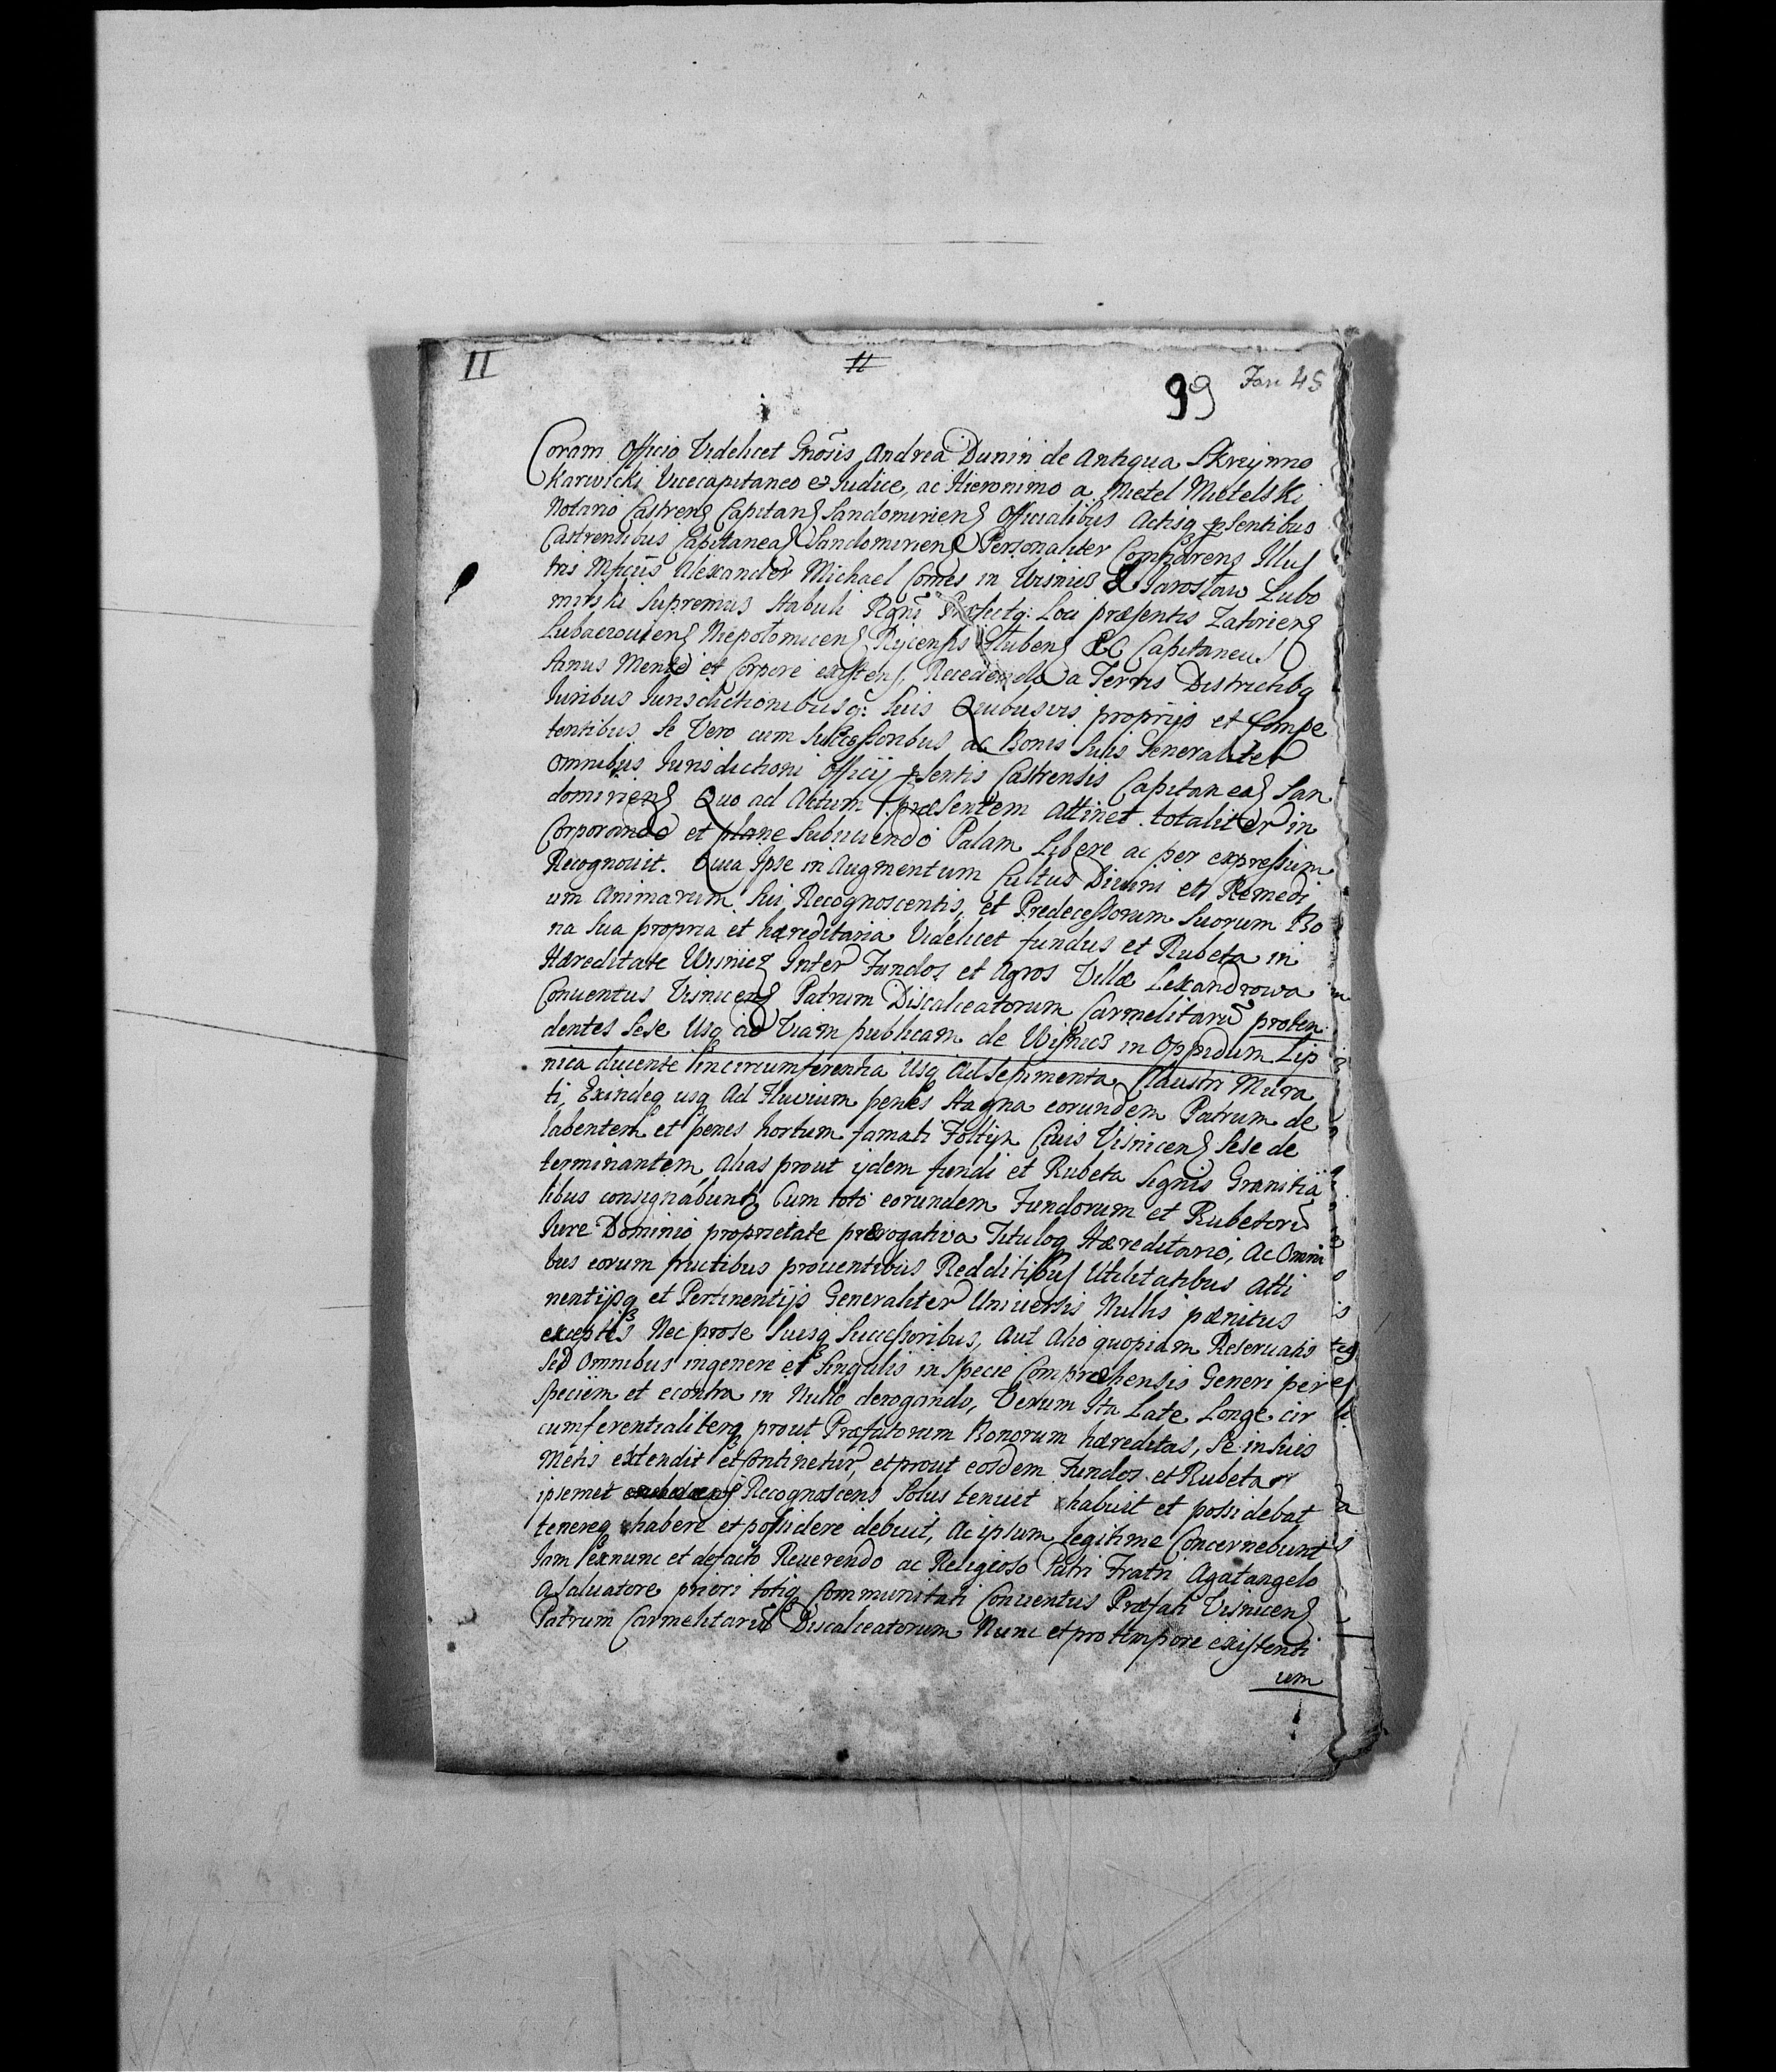 II
11
99 Fasc 45
Coram Officio Videlicet Gnosis Andrea Dunin de Antiqua Skrzynno
Karwicki Vicecapitaneo & Judice, ac Hieronimo a Mietel Mietelski
Notario Castren Capitan Sandomirien Officialibus Actisq psentibus
Castrensibus Capitanea Sandomirien Personaliter Comparens Illus
tris Mficus Alexander Michael Comes in Wisnicz & Iaroslaw Lubo
mirski Supremus Stabuli Rgni Præfectq: Loci præsentis Zatorien
Lubaczovien Niepolomicen Rycensis Stuben &c Capitaneus
Sanus Mente et Corpore existens, Recedendo a Terris Districtibq
Iuribus Iurisdictionibusq: Suis Quibusvis proprijs et Compe
tentibus, Se Vero cum Successoribus ac Bonis Suis Generaliter
Omnibus Iurisdictioni Officij psentis Castrensis Capitanea San
domirien Quo ad Actum præsentem attinet totaliter in
Corporando et plane Subiiciendo Palam Libere ac per expressum
Recognovit. Quia Ipse in Augmentum Cultus Divini et Remedi
um Animarum Sui Recognoscentis, et Predecessorum Suorum Bo
na Sua propria et hæreditaria Videlicet fundus et Rubeta in
Hæreditate Wisnicz Inter Fundos et Agros Villæ Lexandrowa
Conventus Visnicen Patrum Discalceatorum Carmelitarū proten
dentes Sese Usq ad Viam publicam de Wisnicz in Oppidum Lip
nica ducente in circumferentia Usq ad Sepimenta Claustri Mura
ti, Exindeq usq Ad Fluvium penes Stagna eorundem Patrum de
labentem et penes hortum famati Foltijn Civis Visnicen Sese de
terminantem, Alias prout ijdem fundi et Rubeta Signis Granitia
libus consignabunt Cum toto eorundem Fundorum et Rubetorū
Iure Dominio proprietate prærogativa Tituloq Hæreditario, Ac Omni
bus eorum fructibus proventibus Redditibus Utilitatibus Atti
nentijsq et Pertinentijs Generaliter Universis Nullis pænitus
exceptis Nec prose Suisq Successoribus, Aut Alio quopiam Reservatis
Sed Omnibus ingenere et Singulis in Specie Compræhensis Generi per
Speciem et econtra in Nullo derogando, Verum Ita Late Longe cir
cumferentialiterq prout Præfatorum Bonorum hæreditas, Se in Suis
Metis extendit et Continetur, et prout eosdem Fundos et Rubeta
ipsemet Recognoscens Solus tenuit habuit et possidebat
tenereq habere et possidere debuit, Ac ipsum legitime Concernebunt
Iam exnunc et defacto Reverendo ac Religioso Patri Fratri Agatangelo
A Salvatore priori totiq Communitati Conventus Præfati Visnicen
Patrum Carmelitarū Discalceatorum Nunc et pro tempore existenti
um